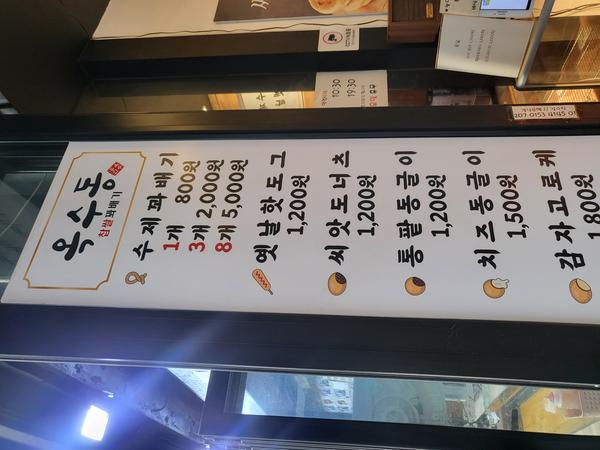 옥수동
찹쌀꽈배기
수제꽈배기
1개 800원
3개 2,000원
8개 5,000원
옛날핫도그
1,200원
씨앗도너츠
1,200원
통팥동글이
1,200원
치즈동글이
1,500원
감자고로케
1,800원
10:30
19:30
207 0153 4145 01